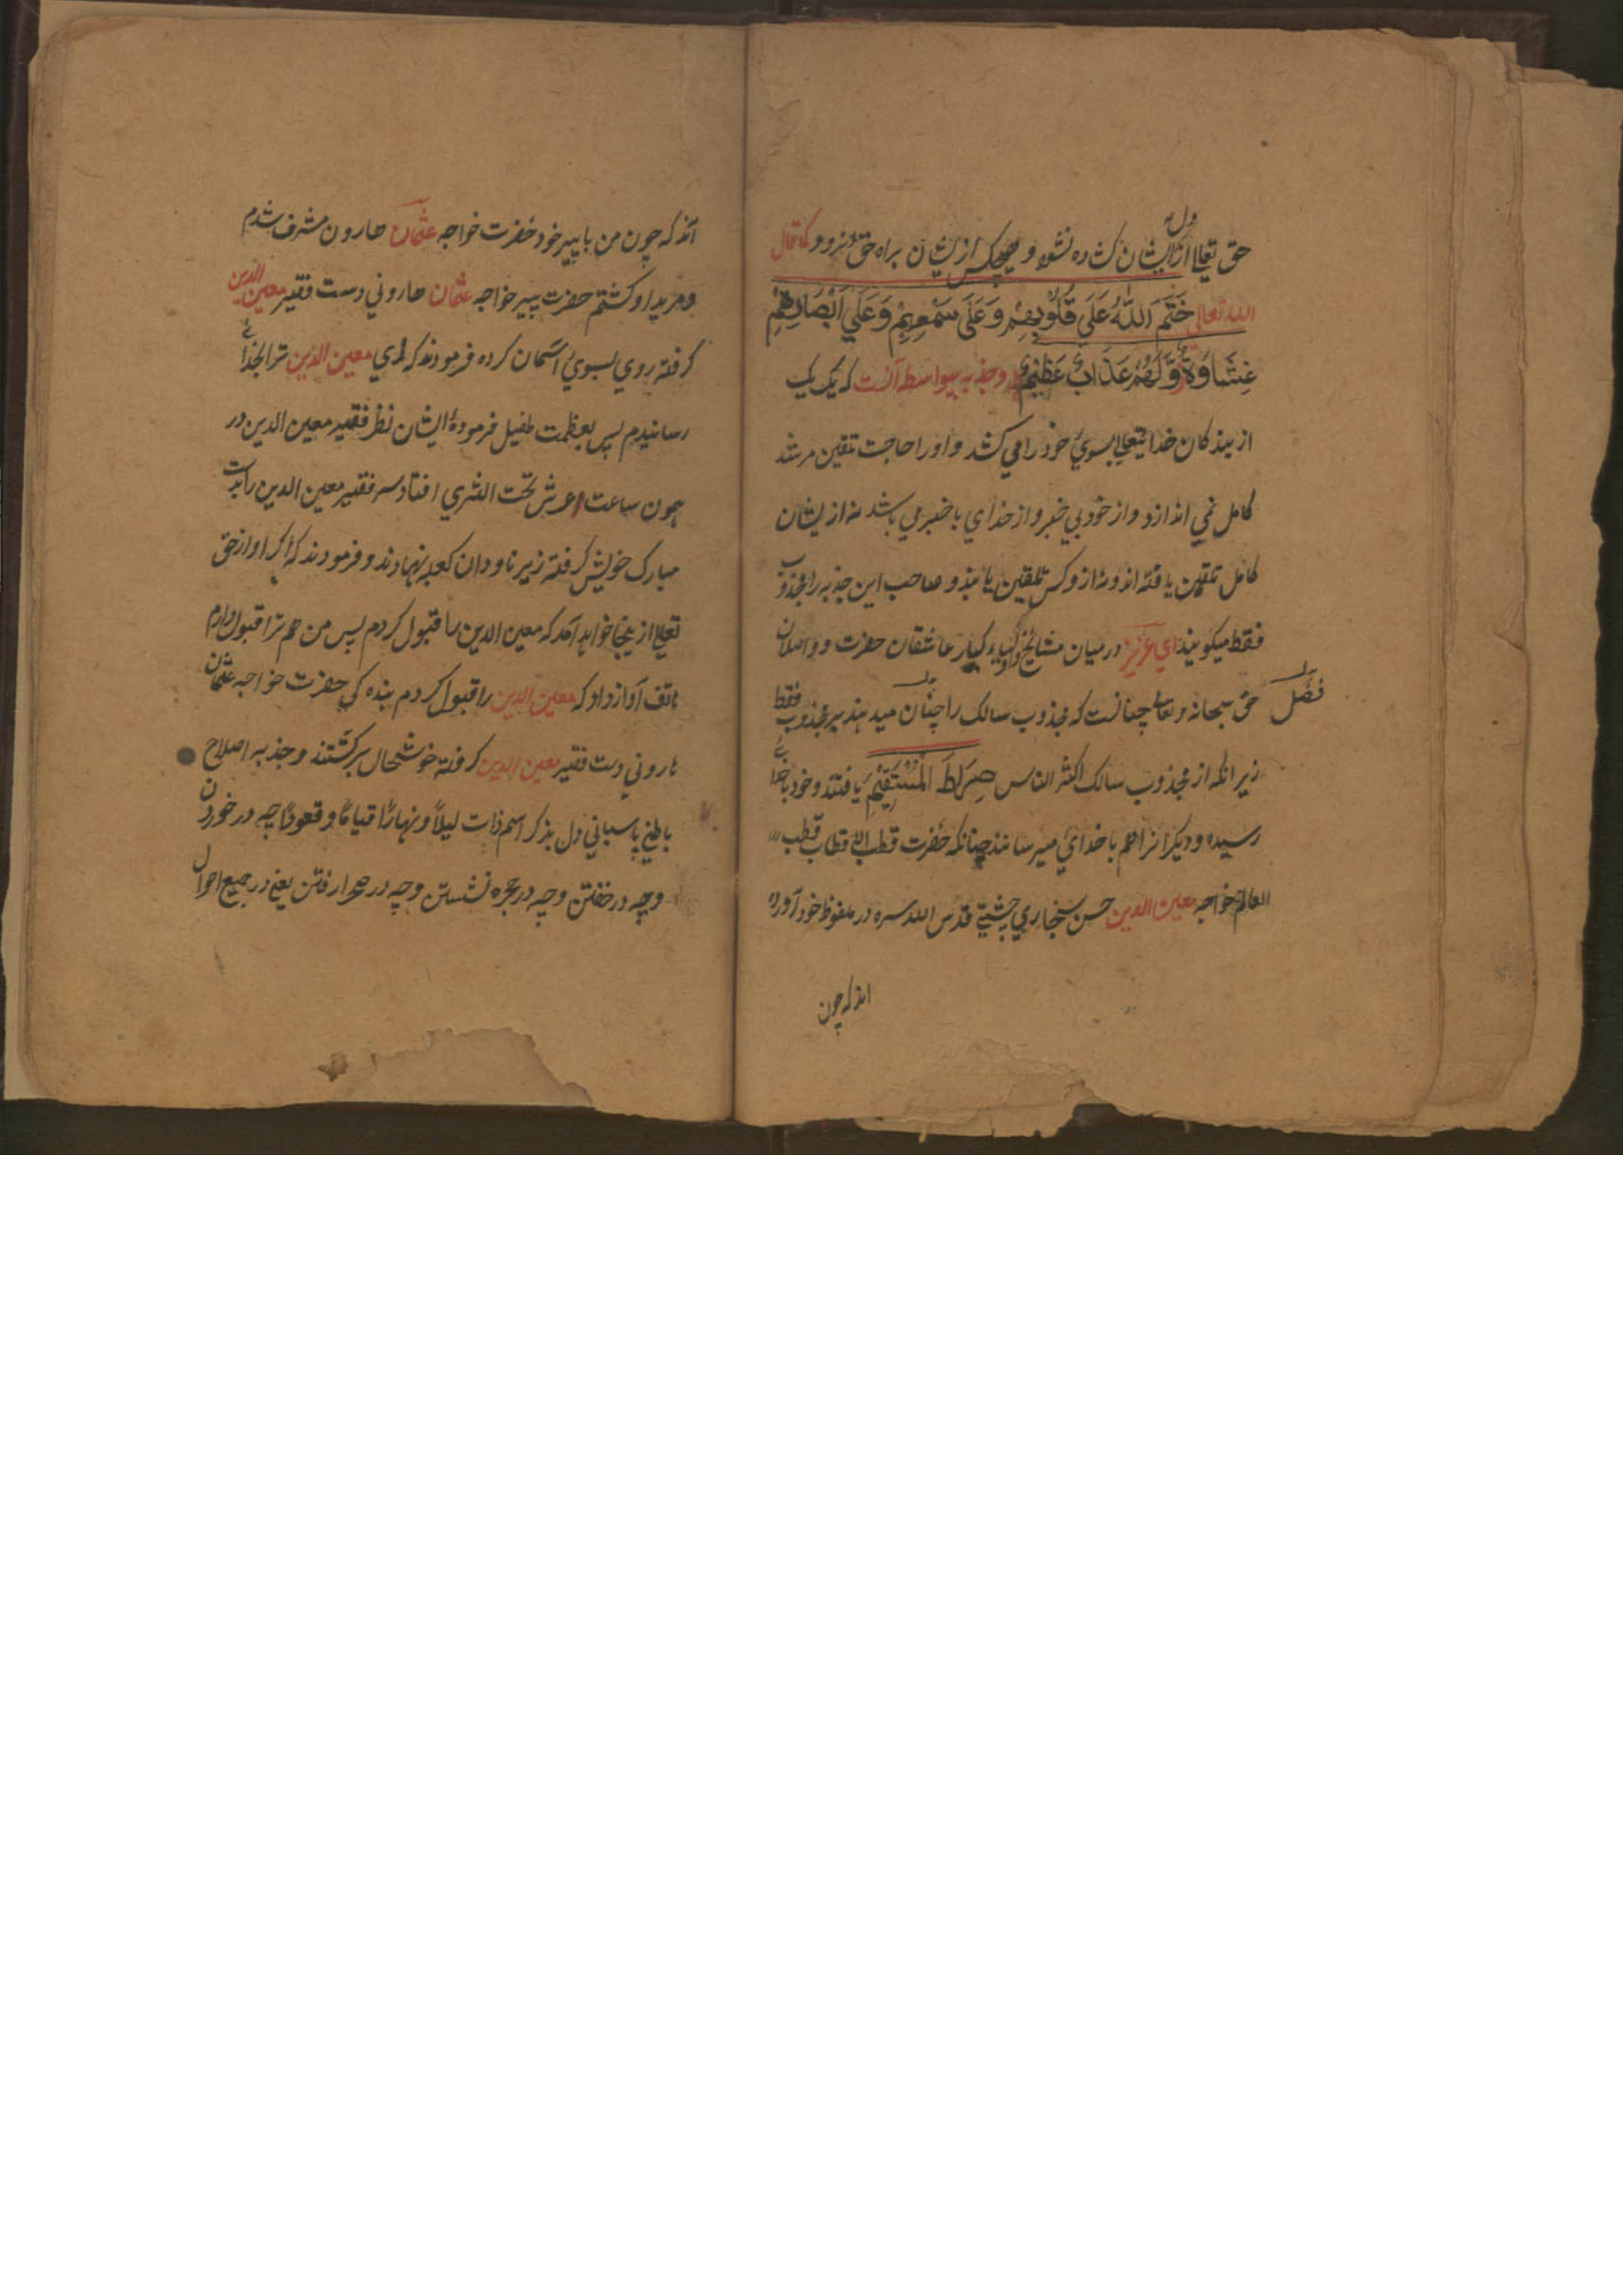 حق تعالی از دل ایشان کشاده نشود و هیچکس از ایشان براه حق نرود کما قال
الله تعالی خَتَمَ اللّٰهُ عَلَی قُلُوبِهِمْ وَعَلَی سَمْعِهِمْ وَعَلَی اَبْصَارِهِمْ
غِشَاوَةٌ وَّلَهُمْ عَذَابٌ عَظِیمٌ و جذبه بیواسطه آنست که یک یک
از بندکان خدایتعالی بسوی خود را می کشد و او را حاجت تلقین مرشد
کامل نمی اندازد و از خود بی خبر و از خدای با خبر می باشد نه از ایشان
کامل تلقین یافته اند و نه از و کس تلقین یابند و صاحب این جذبه را مجذوب
فقط میکویند ای عزیز در میان مشائخ و اولیاء کبار عاشقان حضرت و واصلان
حق سبحانه و تعالی چنانست که مجذوب سالک را چنان میدهند بر مجذوب فقط
فضل
زیرا نکه از مجذوب سالک اکثر الناس صِرَاطَ الْمُسْتَقِیْمَ یافتند و خود با خدای
رسیده و دیکرانرا هم با خدائ میرسانند چنانکه حضرت قطب الاقطاب قطب
العالم خواجه معین الدین حسن سنجاری چشتی قدس الله سره در ملفوظ خود آورده
اند که چون
اند که چون من با پیر خود حضرت خواجه عثمان هارون مشرف شدم
و مرید او کشتم حضرت پیر خواجه عثمان هارونی دست فقیر معین الدین
کرفته روی بسوی آسمان کرده فرمودند که ای معین الدین ترا بخدای
رسانیدم پس بعظمت طفیل فرمودهٔ ایشان نظر فقیر معین الدین در
همون ساعت از عرش تحت الثری افتاد سر فقیر معین الدین را بدست
مبارک خویش کرفته زیر ناودان کعبه نهادند و فرمودند که اکر آواز حق
تعالی از ینجا خواهد آمد که معین الدین را قبول کردم پس من هم ترا قبول دارم
هاتف آواز داد که معین الدین را قبول کردم بنده کی حضرت خواجه عثمان
هارونی دست فقیر معین الدین کرفته خوشحال برکشتند و جذبه اصلاح
باطنی پاسبانی دل بذکر اسم ذات لیلاً و نهاراً قیاماً و قعوداً چه در خوردن
و چه در خفتن و چه در حجره نشستن و چه در صحرا رفتن یعنی در جمیع احوال